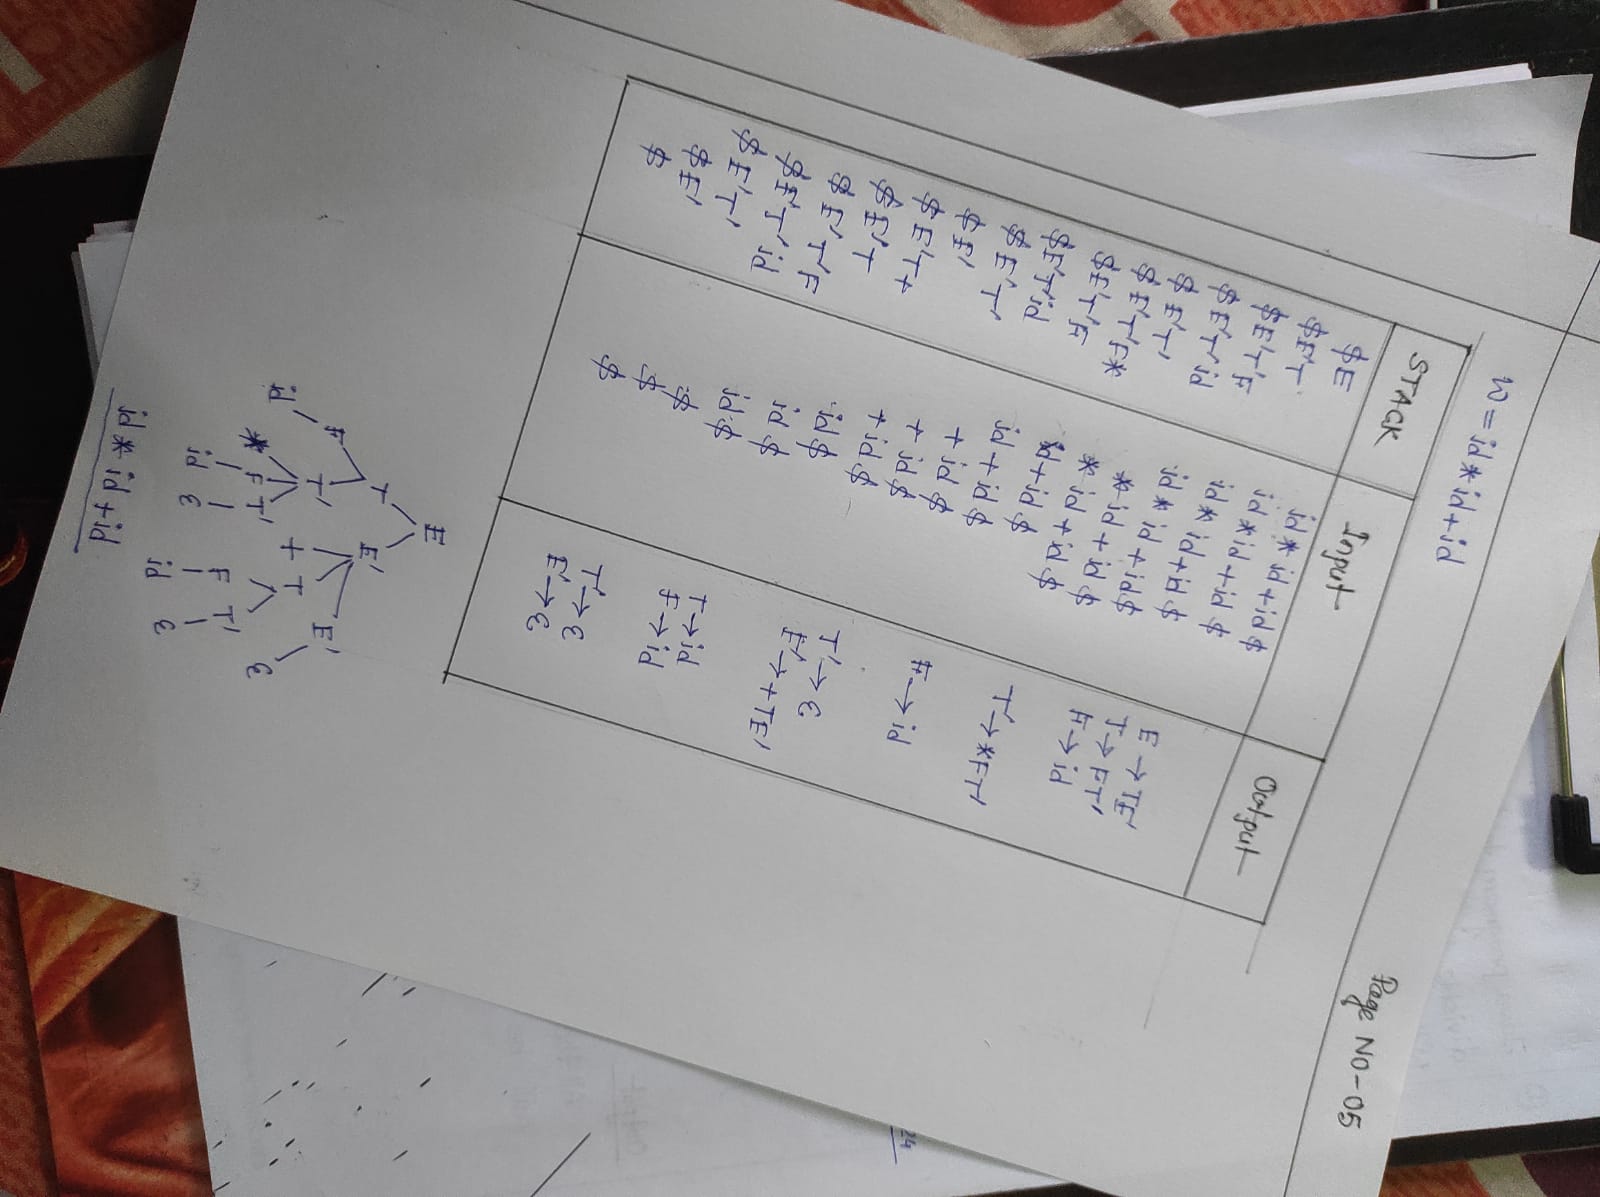 Page NO-05
w = id * id + id
STACK Input Output
$E id * id + id $
$E'T id * id + id $ E → TE'
$E'T'F id * id + id $ T → FT'
$E'T'id id * id + id $ F → id
$E'T' * id + id $
$E'T'F* * id + id $ T' → *FT'
$E'T'F id + id $
$E'T'id id + id $ F → id
$E'T' + id $
$E' + id $ T' → ε
$E'T+ + id $ E' → +TE'
$E'T id $
$E'T'F id $ T → id
$E'T'id id $ F → id
$E'T' $
$E' $ T' → ε
$ $ E' → ε
E
T E'
F T' + T E'
id * F T' F T' ε
id ε id ε
id * id + id
24